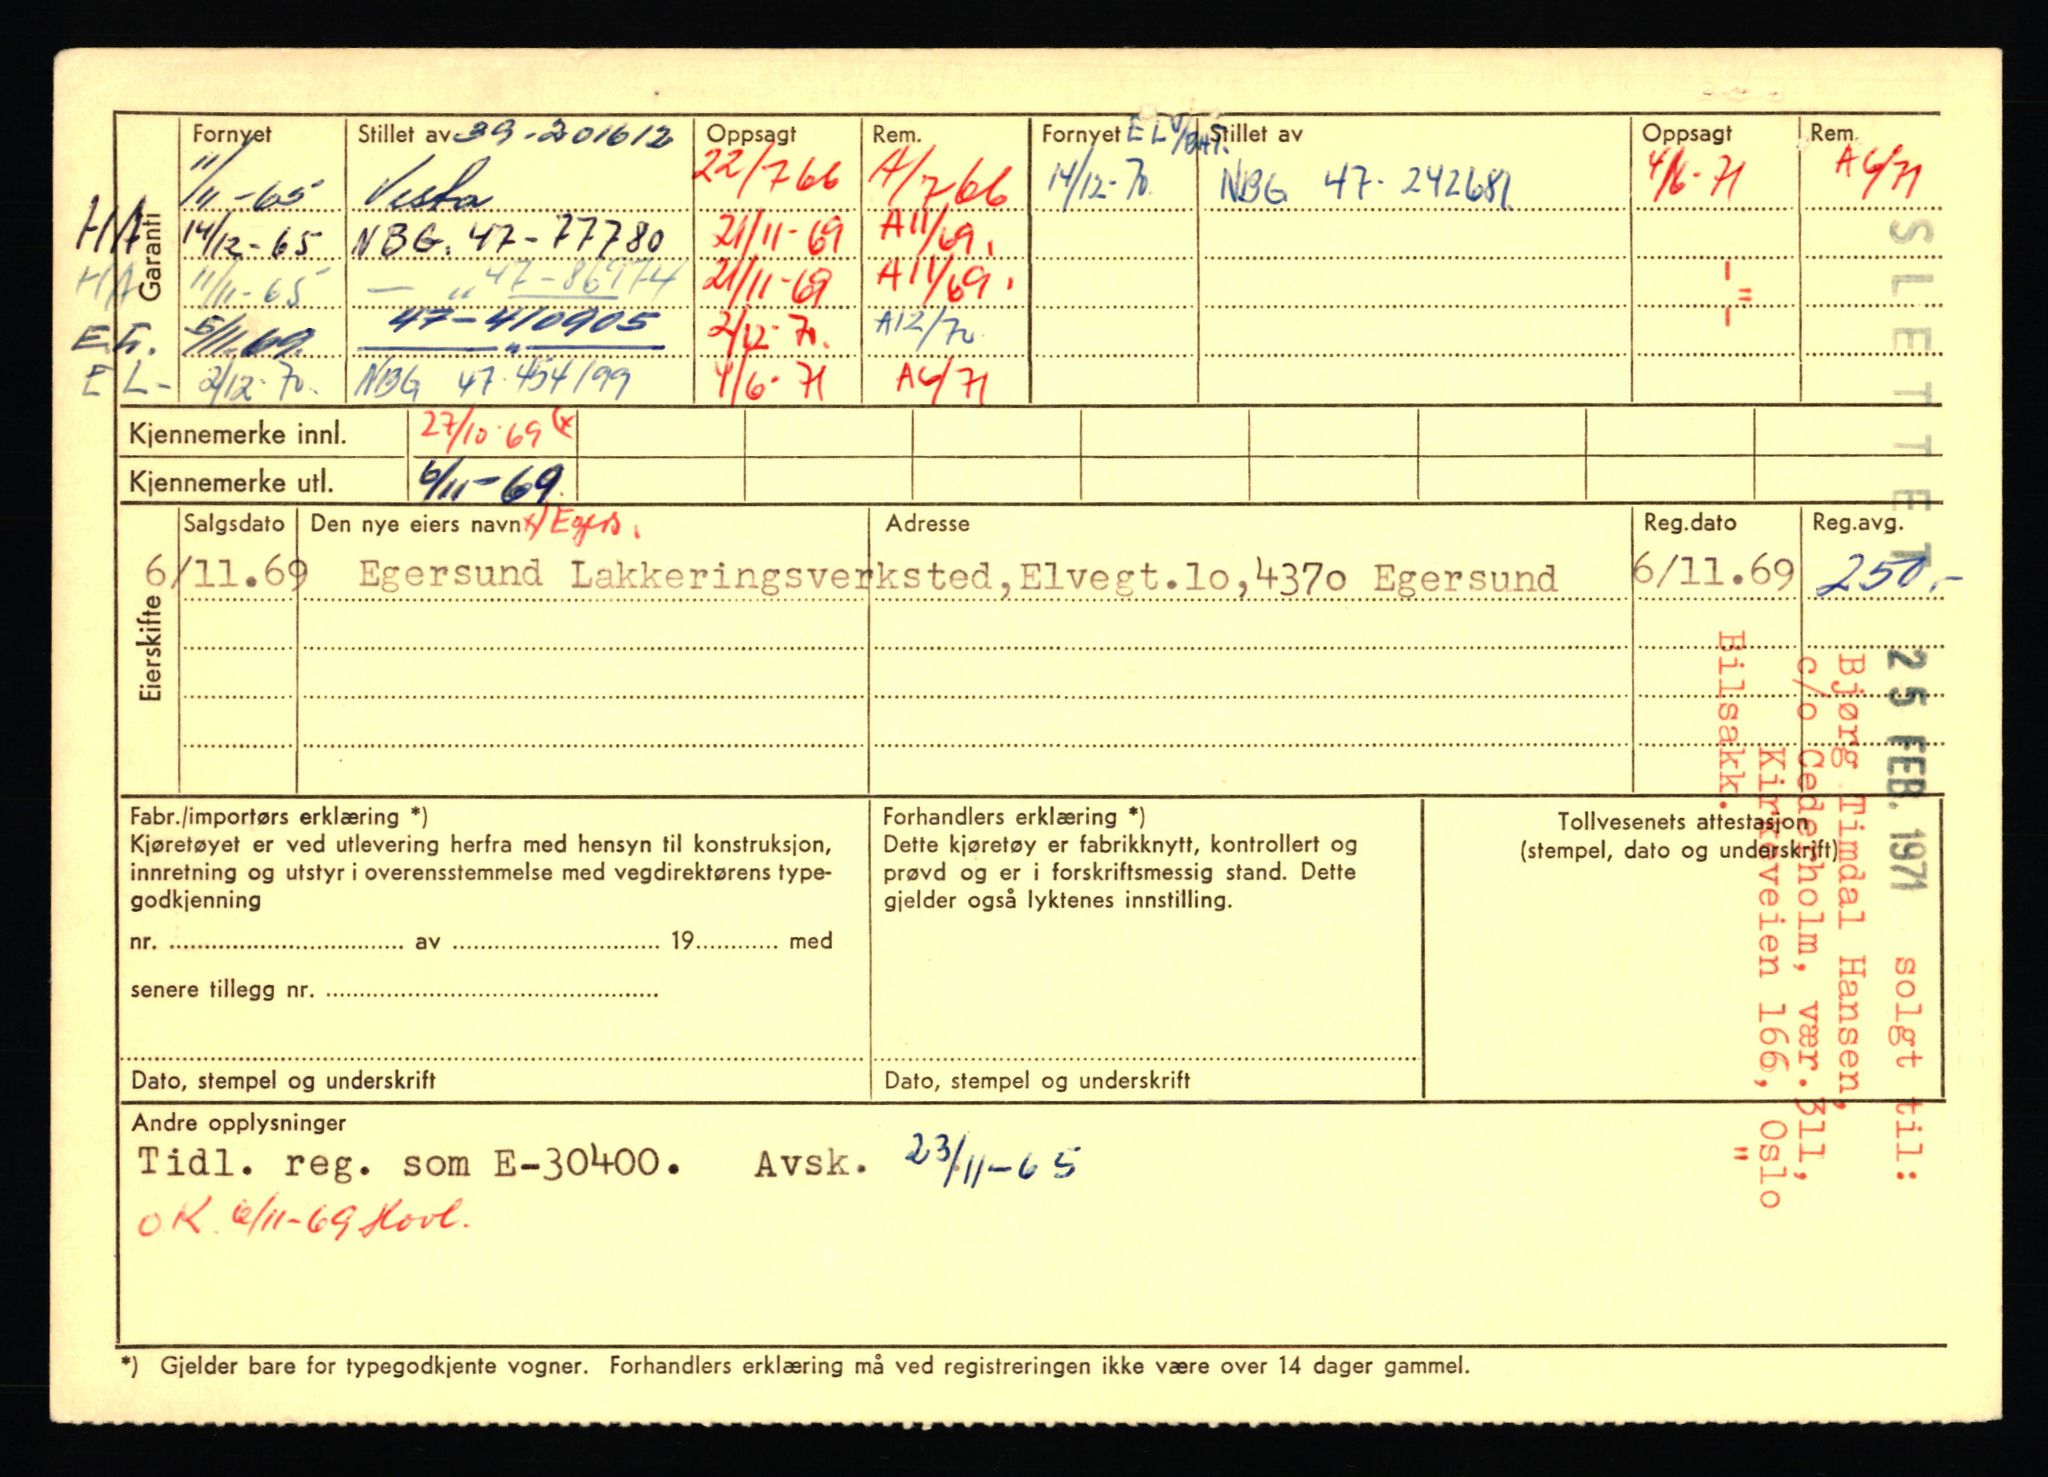 Fornyet Stillet av 39-201612 Oppsagt Rem. Fornyet Stillet av Oppsagt Rem.
Garanti
11/11-65 Vesta 22/7 66 A/766 14/12-70. NBG 47-242681 4/6-71 A6/71
HA 14/12-65 NBG. 47-77780 21/11-69 A11/69.
HA 11/11-65 — „ 47-86974 21/11-69 A11/69. -"-
E.L. 5/11.69. 47-410905 2/12-70. A12/70.
EL- 2/12-70. NBG 47-454199 4/6-71 A6/71
Kjennemerke innl. 27/10-69 (x
Kjennemerke utl. 6/11-69.
Eierskifte
Salgsdato Den nye eiers navn x/Egers. Adresse Reg.dato Reg.avg.
6/11.69 Egersund Lakkeringsverksted,Elvegt.10,4370 Egersund 6/11.69 250.-
SLETTET 25 FEB. 1971 solgt til:
Bjørg Timdal Hansen,
c/o Cederholm, vær.311,
Kirkeveien 166, Oslo
Bilsakk. "
Fabr./importørs erklæring *)
Kjøretøyet er ved utlevering herfra med hensyn til konstruksjon,
innretning og utstyr i overensstemmelse med vegdirektørens type-
godkjenning
nr. ........ av ........ 19........ med
senere tillegg nr. ........
Dato, stempel og underskrift
Forhandlers erklæring *)
Dette kjøretøy er fabrikknytt, kontrollert og
prøvd og er i forskriftsmessig stand. Dette
gjelder også lyktenes innstilling.
Dato, stempel og underskrift
Tollvesenets attestasjon
(stempel, dato og underskrift)
Andre opplysninger
Tidl. reg. som E-30400. Avsk. 23/11-65
O.K. 6/11-69 Hovl.
*) Gjelder bare for typegodkjente vogner. Forhandlers erklæring må ved registreringen ikke være over 14 dager gammel.